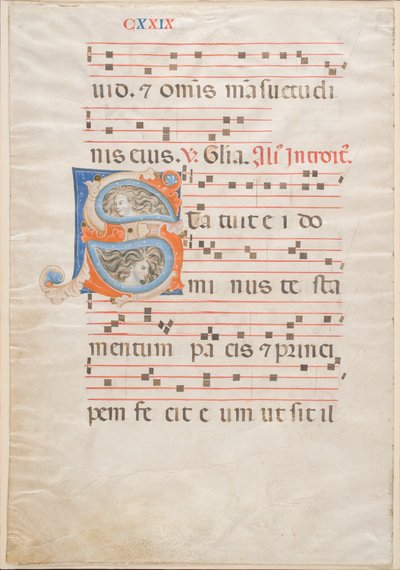 CXXIX
uid. ⁊ omīs māsuetudi
nis eius. V. Gľia. Alī Introit̄.
Statuit ei do
mi nus te sta
mentum pa cis ⁊ princi
pem fe cit e um ut sit il